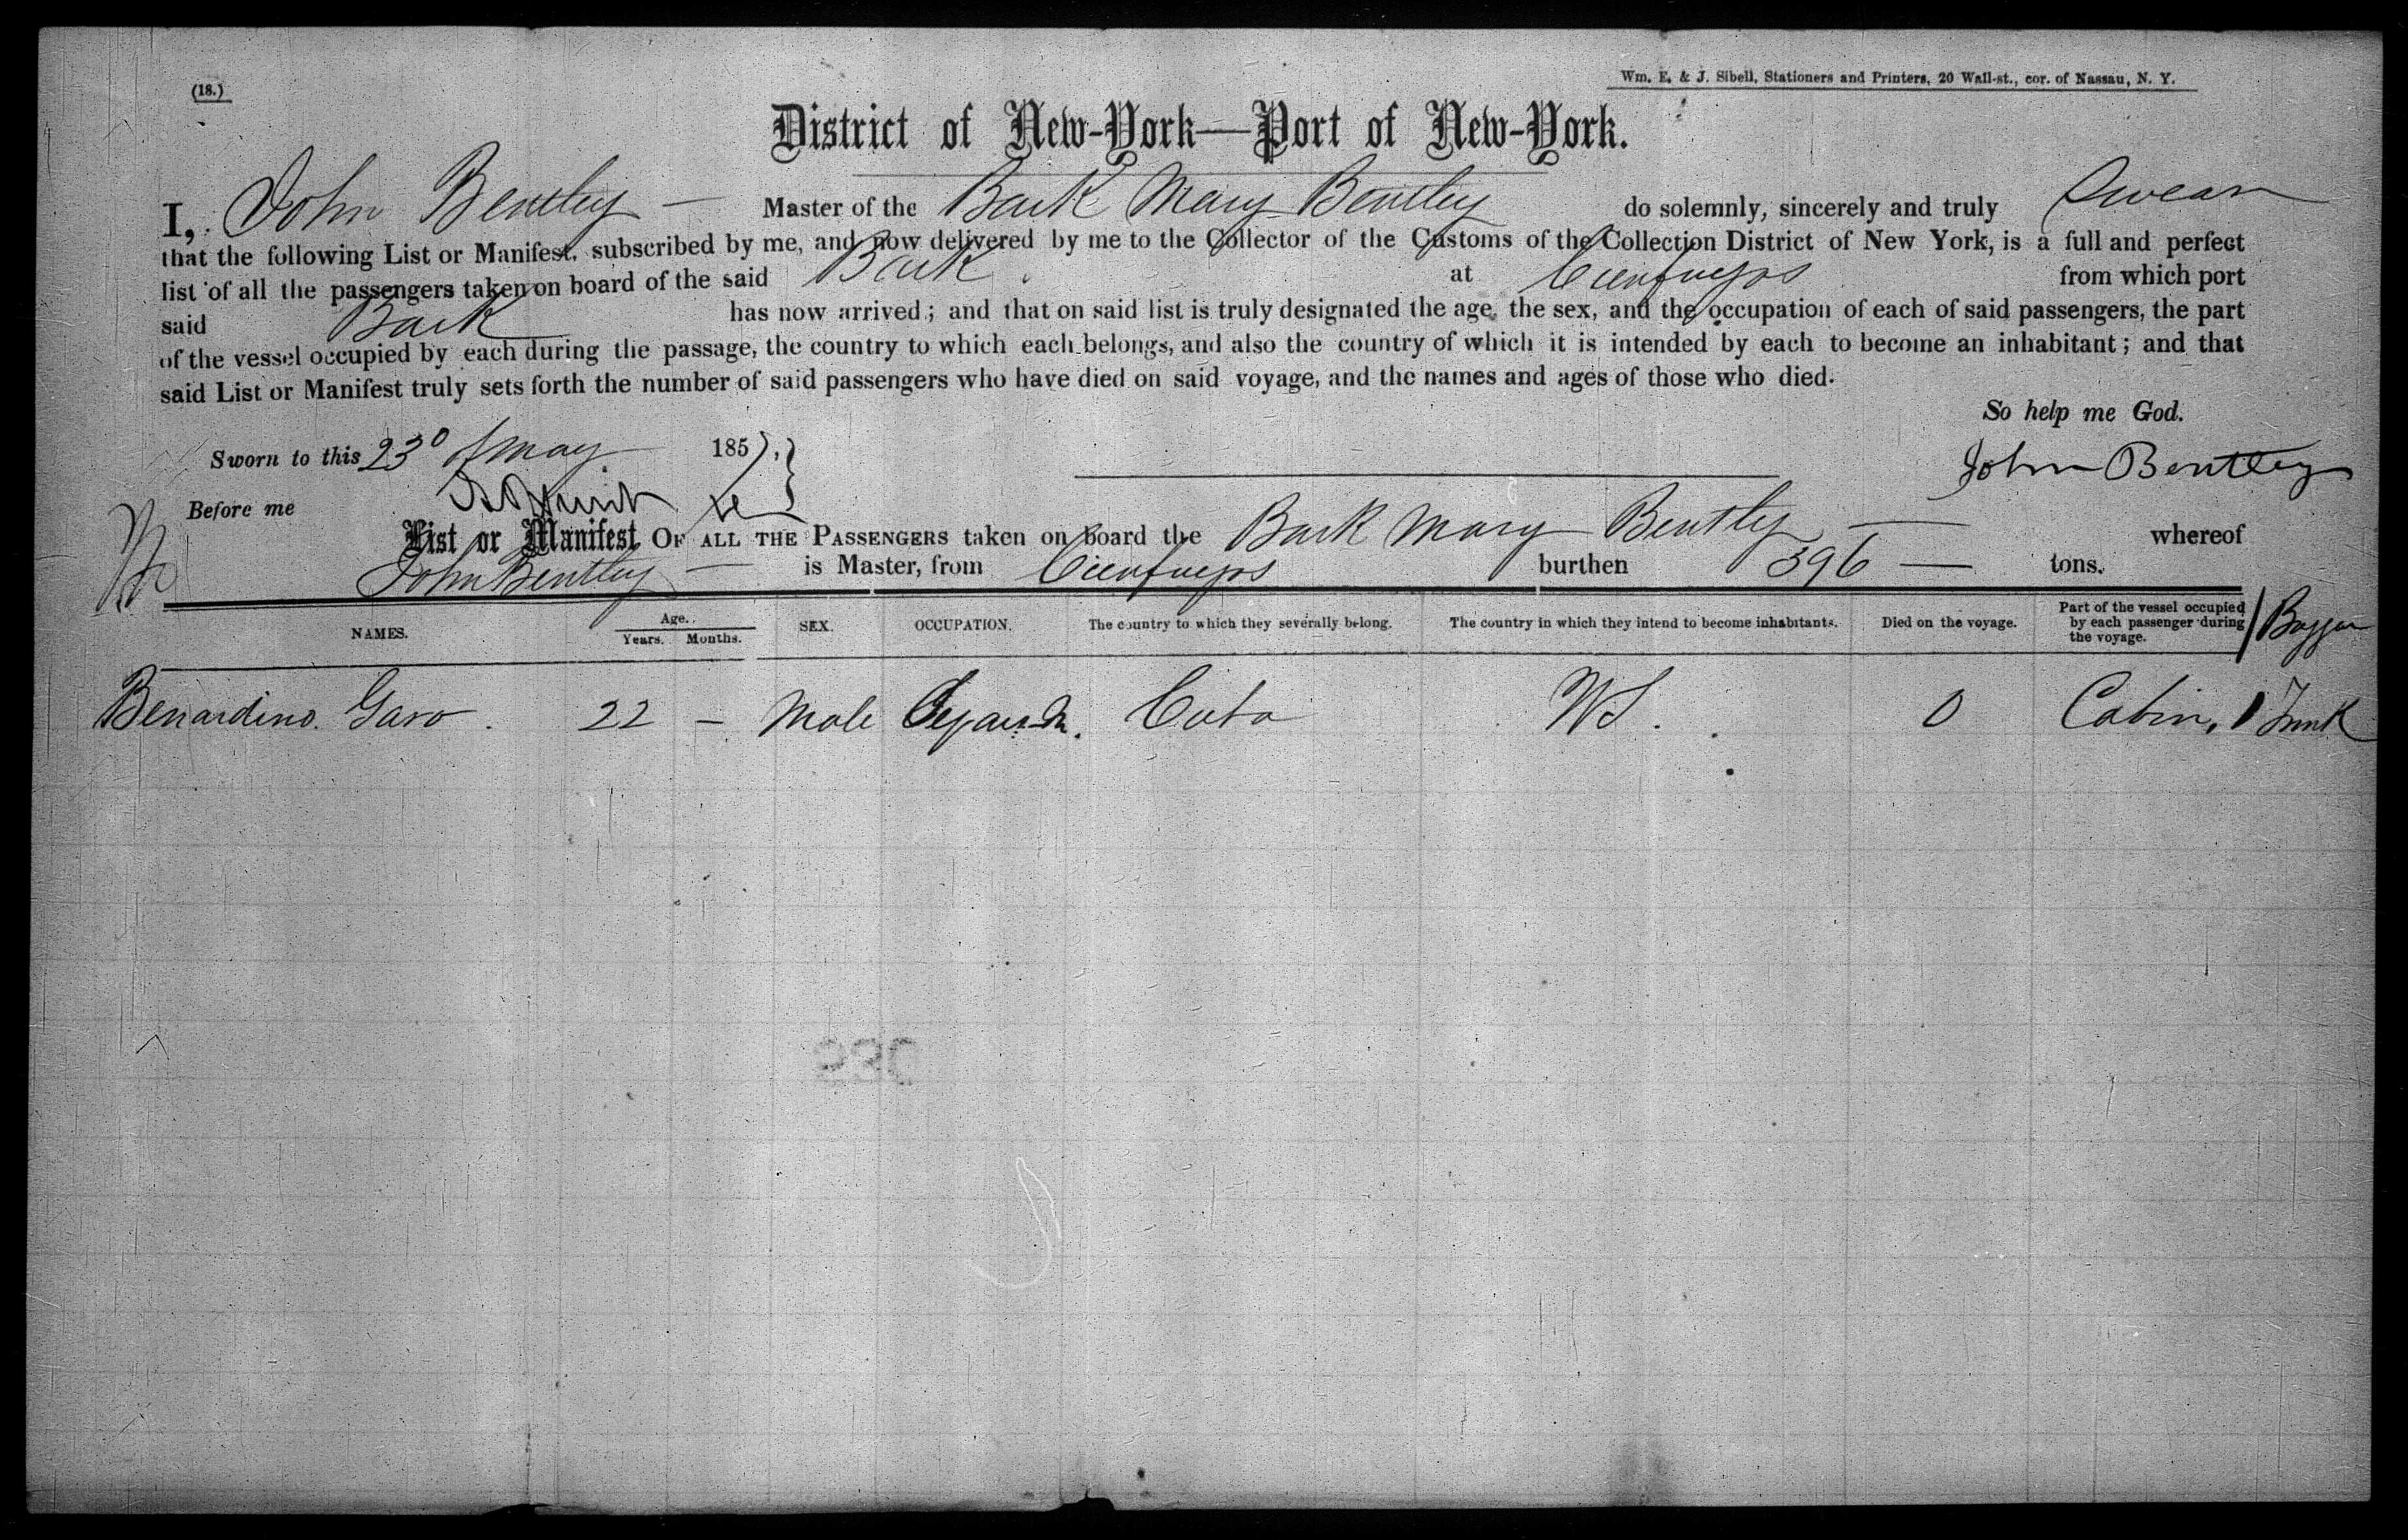 (18.)
Wm. E. & J. Sibell, Stationers and Printers, 20 Wall-st., cor. of Nassau, N. Y.
District of New-York—Port of New-York.
I, John Bentley — Master of the Bark Mary Bentley do solemnly, sincerely and truly Swear
that the following List or Manifest, subscribed by me, and now delivered by me to the Collector of the Customs of the Collection District of New York, is a full and perfect
list of all the passengers taken on board of the said Bark at Cienfuegos from which port
said Bark has now arrived; and that on said list is truly designated the age, the sex, and the occupation of each of said passengers, the part
of the vessel occupied by each during the passage, the country to which each belongs, and also the country of which it is intended by each to become an inhabitant; and that
said List or Manifest truly sets forth the number of said passengers who have died on said voyage, and the names and ages of those who died.
So help me God.
Sworn to this 23d May 1857, John Bentley
Before me
List or Manifest OF ALL THE PASSENGERS taken on board the Bark Mary Bentley — whereof
John Bentley — is Master, from Cienfuegos burthen 396 — tons.
NAMES. Age. Years. Months. SEX. OCCUPATION. The country to which they severally belong. The country in which they intend to become inhabitants. Died on the voyage. Part of the vessel occupied by each passenger during the voyage.
Benardino Garo. 22 — Male Cuba 0 Cabin, 1 Trunk